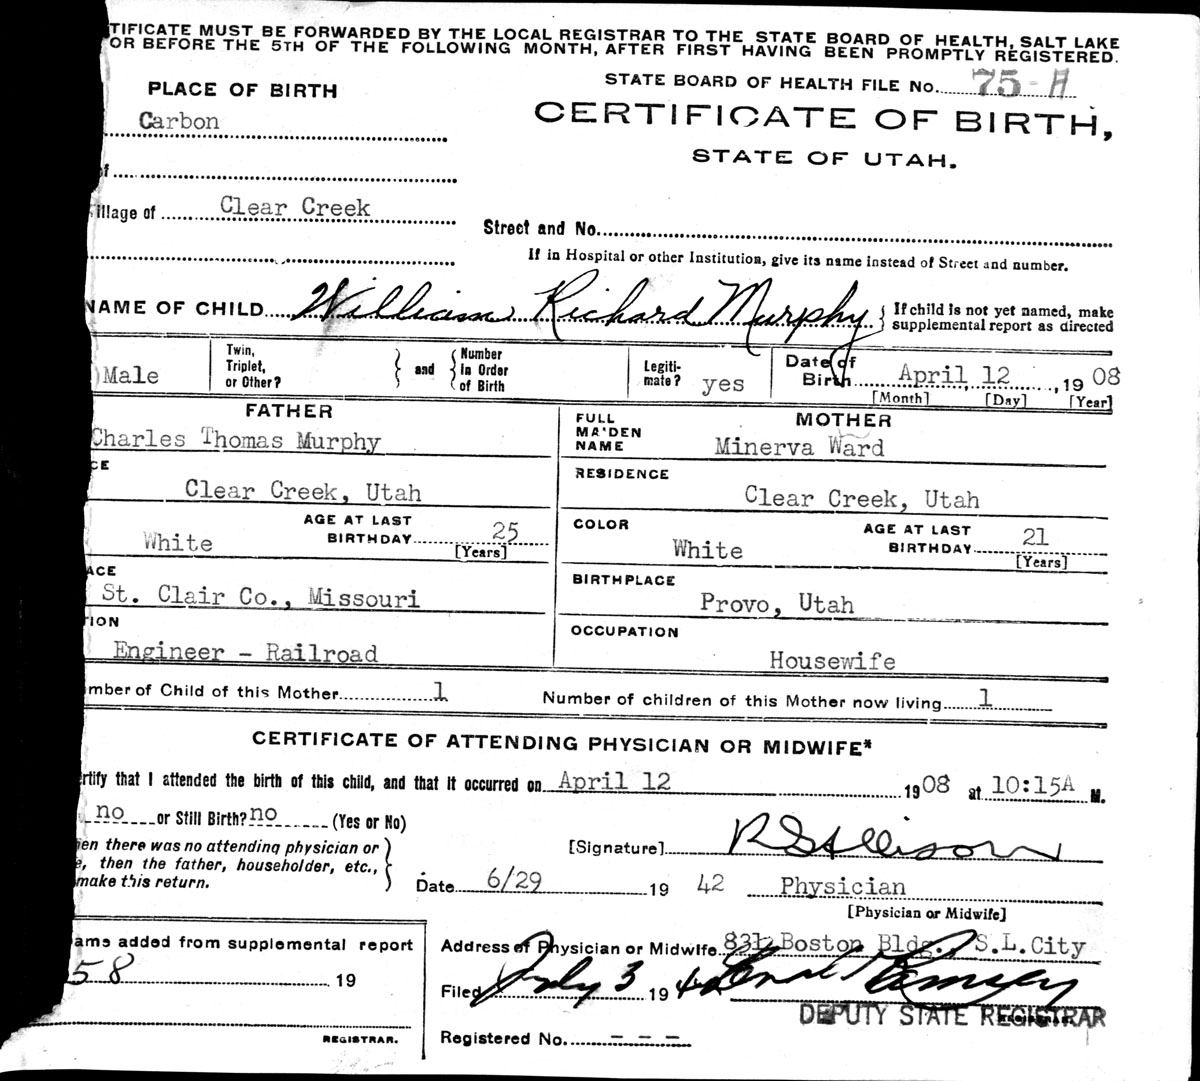 TIFICATE MUST BE FORWARDED BY THE LOCAL REGISTRAR TO THE STATE BOARD OF HEALTH, SALT LAKE
OR BEFORE THE 5TH OF THE FOLLOWING MONTH, AFTER FIRST HAVING BEEN PROMPTLY REGISTERED.
PLACE OF BIRTH
STATE BOARD OF HEALTH FILE No. 75-A
Carbon
CERTIFICATE OF BIRTH,
STATE OF UTAH.
of
illage of Clear Creek
Street and No.
If in Hospital or other Institution, give its name instead of Street and number.
NAME OF CHILD William Richard Murphy { If child is not yet named, make
supplemental report as directed
)Male
Twin,
Triplet,
or Other?
} and {
Number
in Order
of Birth
Legiti-
mate? yes
Date of
Birth April 12, 1908
[Month] [Day] [Year]
FATHER
Charles Thomas Murphy
FULL
MAIDEN
NAME
MOTHER
Minerva Ward
CE
Clear Creek, Utah
RESIDENCE
Clear Creek, Utah
White
AGE AT LAST
BIRTHDAY 25
[Years]
COLOR
White
AGE AT LAST
BIRTHDAY 21
[Years]
ACE
St. Clair Co., Missouri
BIRTHPLACE
Provo, Utah
TION
Engineer - Railroad
OCCUPATION
Housewife
mber of Child of this Mother 1 Number of children of this Mother now living 1
CERTIFICATE OF ATTENDING PHYSICIAN OR MIDWIFE*
rtify that I attended the birth of this child, and that it occurred on April 12 1908 at 10:15A M.
no or Still Birth? no (Yes or No)
en there was no attending physician or
e, then the father, householder, etc.,
make this return.
[Signature] R G Allison
Date 6/29 1942 Physician
[Physician or Midwife]
ame added from supplemental report
58 19
REGISTRAR.
Address of Physician or Midwife 831 Boston Bldg., S.L.City
Filed July 3 1942 Ramsey
DEPUTY STATE REGISTRAR
Registered No. - - -